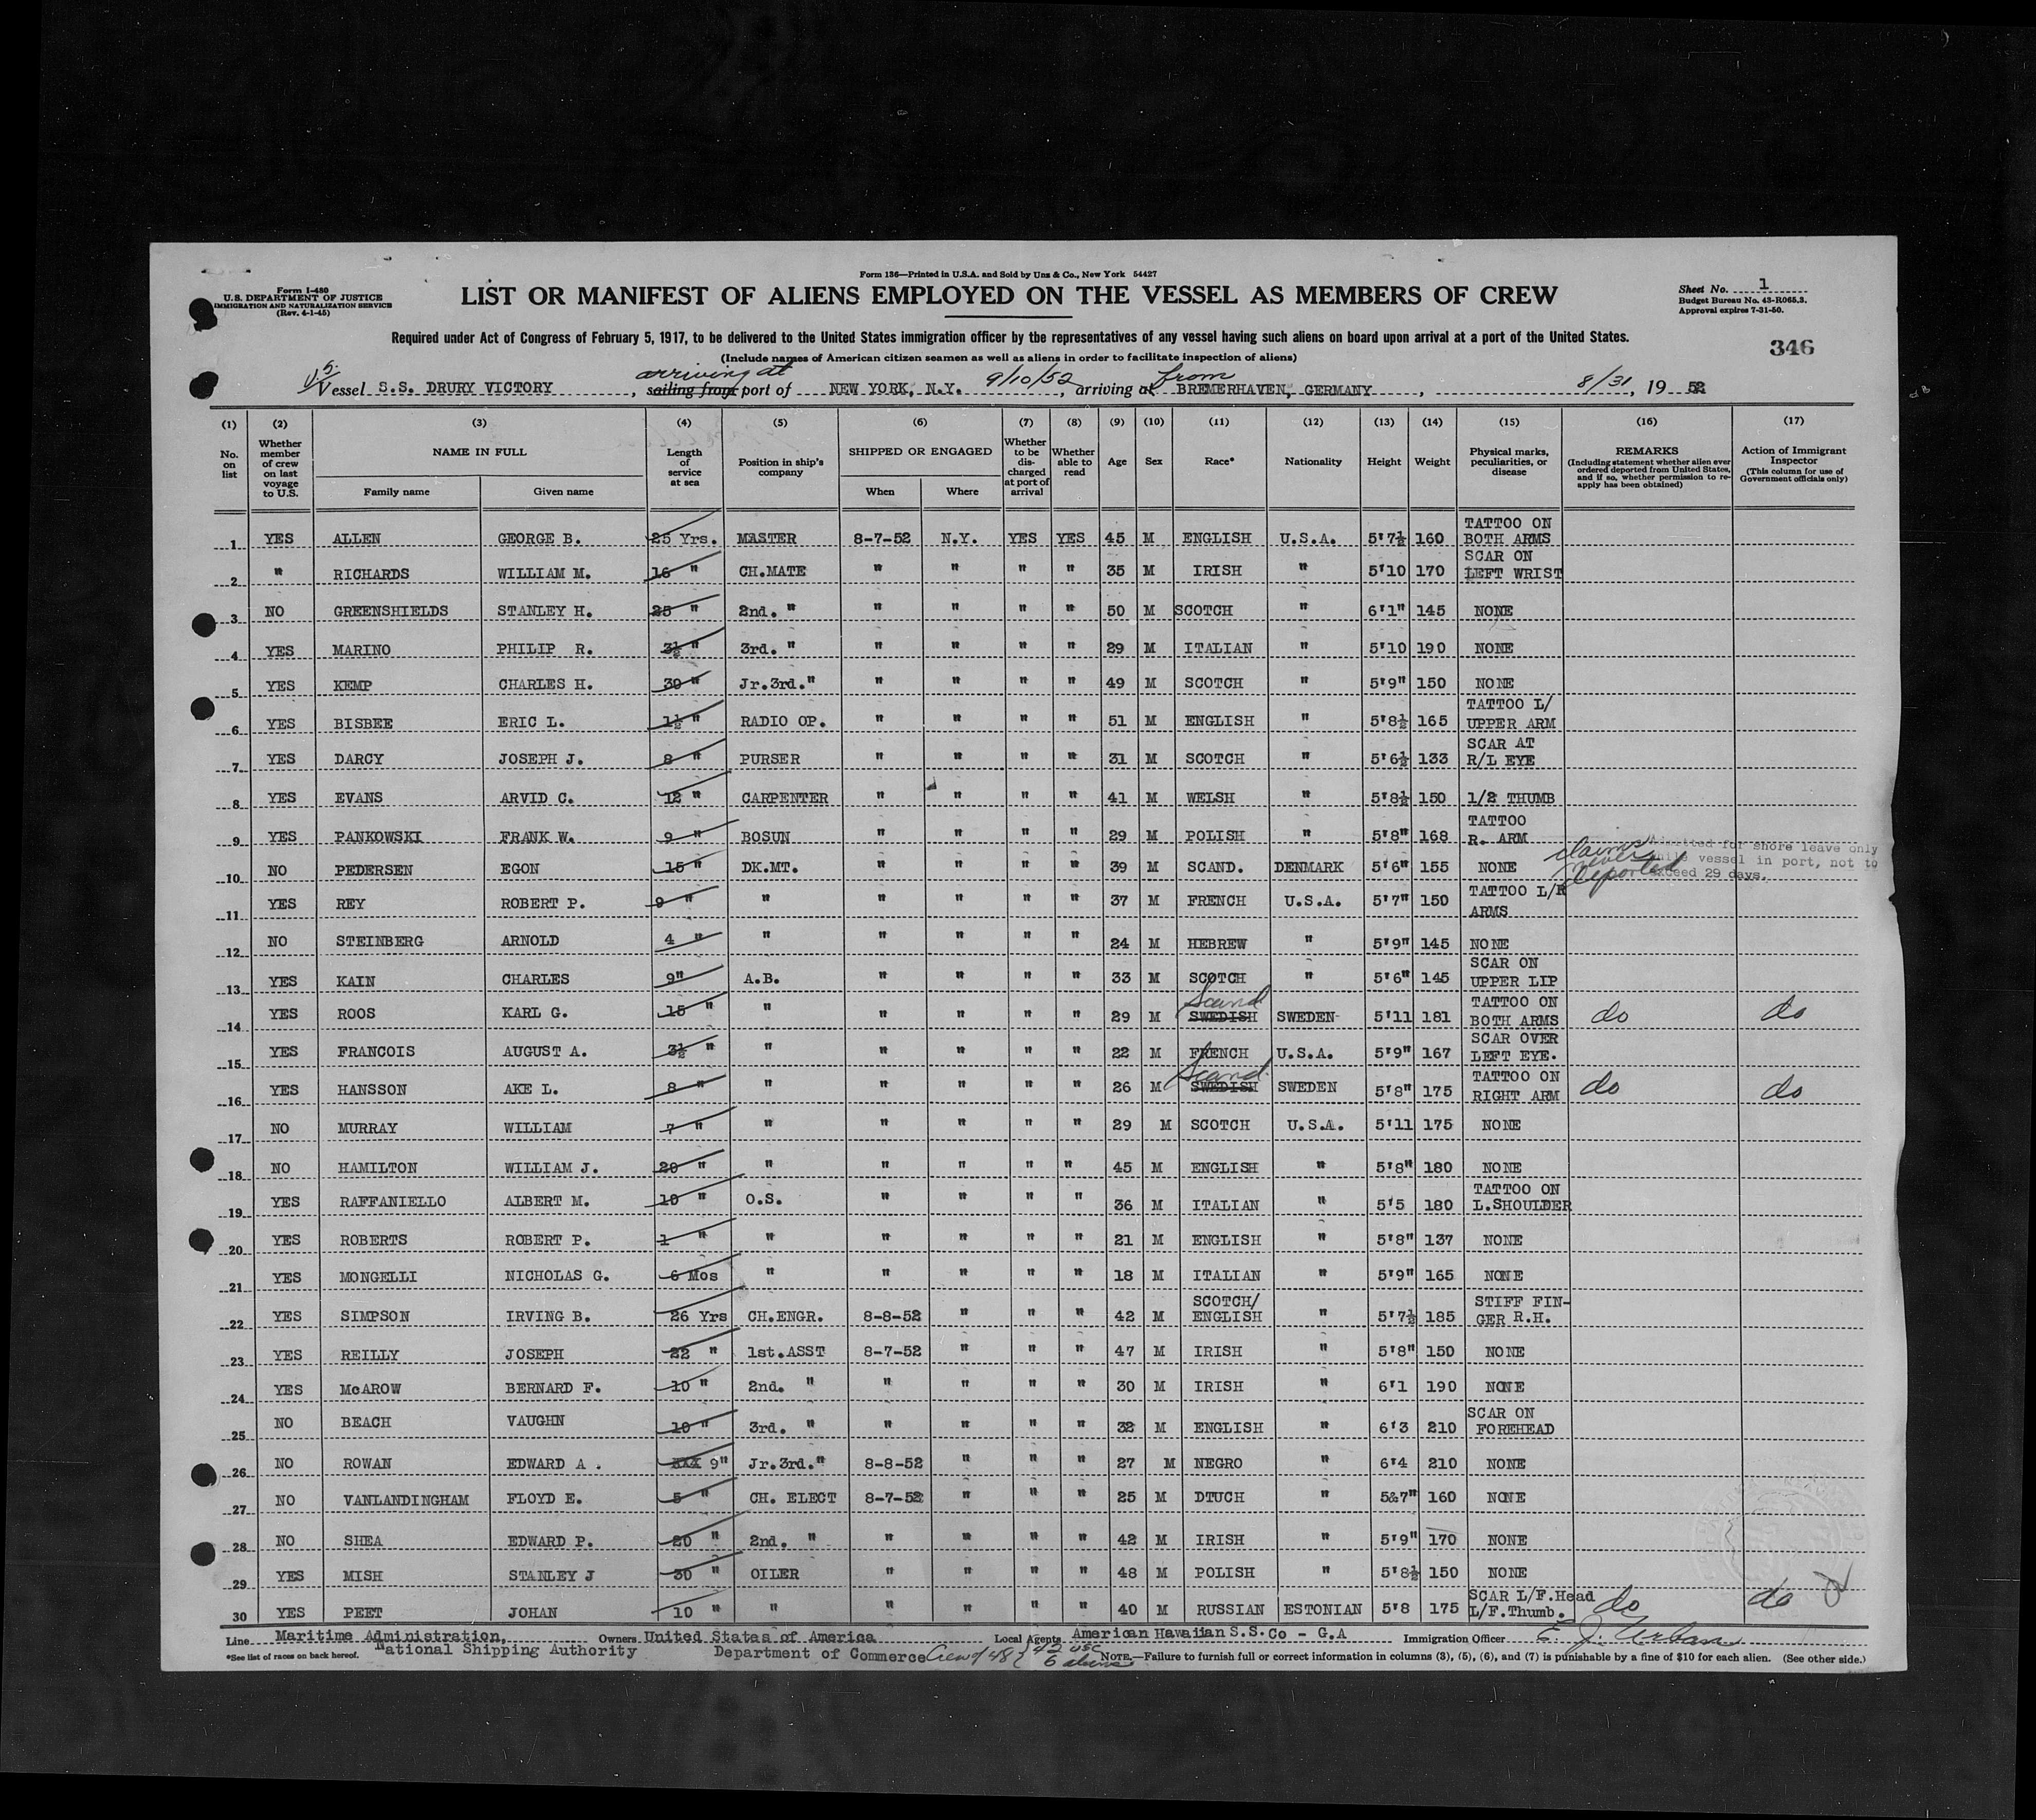 Form 136—Printed in U.S.A. and Sold by Unz & Co., New York 54427
Form I-480
U.S. DEPARTMENT OF JUSTICE
IMMIGRATION AND NATURALIZATION SERVICE
(Rev. 4-1-45)
LIST OR MANIFEST OF ALIENS EMPLOYED ON THE VESSEL AS MEMBERS OF CREW
Sheet No. 1
Budget Bureau No. 43-R065.3.
Approval expires 7-31-50.
Required under Act of Congress of February 5, 1917, to be delivered to the United States immigration officer by the representatives of any vessel having such aliens on board upon arrival at a port of the United States.
346
(Include names of American citizen seamen as well as aliens in order to facilitate inspection of aliens)
US Vessel S.S. DRURY VICTORY, arriving at sailing from port of NEW YORK, N.Y. 9/10/52, arriving at from BREMERHAVEN, GERMANY, 8/31, 19 52
(1) (2) (3) (4) (5) (6) (7) (8) (9) (10) (11) (12) (13) (14) (15) (16) (17)
No. on list Whether member of crew on last voyage to U.S. NAME IN FULL Family name Given name Length of service at sea Position in ship's company SHIPPED OR ENGAGED When Where Whether to be discharged at port of arrival Whether able to read Age Sex Race* Nationality Height Weight Physical marks, peculiarities, or disease REMARKS (Including statement whether alien ever ordered deported from United States, and if so, whether permission to re-apply has been obtained) Action of Immigrant Inspector (This column for use of Government officials only)
1 YES ALLEN GEORGE B. 25 Yrs. MASTER 8-7-52 N.Y. YES YES 45 M ENGLISH U.S.A. 5'7½ 160 TATTOO ON BOTH ARMS
2 " RICHARDS WILLIAM M. 16 " CH.MATE " " " " 35 M IRISH " 5'10 170 SCAR ON LEFT WRIST
3 NO GREENSHIELDS STANLEY H. 25 " 2nd. " " " " " 50 M SCOTCH " 6'1" 145 NONE
4 YES MARINO PHILIP R. 3½ " 3rd. " " " " " 29 M ITALIAN " 5'10 190 NONE
5 YES KEMP CHARLES H. 30 " Jr.3rd." " " " " 49 M SCOTCH " 5'9" 150 NONE
6 YES BISBEE ERIC L. 1½ " RADIO OP. " " " " 51 M ENGLISH " 5'8½ 165 TATTOO L/ UPPER ARM
7 YES DARCY JOSEPH J. 8 " PURSER " " " " 31 M SCOTCH " 5'6½ 133 SCAR AT R/L EYE
8 YES EVANS ARVID C. 12 " CARPENTER " " " " 41 M WELSH " 5'8½ 150 1/2 THUMB
9 YES PANKOWSKI FRANK W. 9 " BOSUN " " " " 29 M POLISH " 5'8" 168 TATTOO R. ARM
10 NO PEDERSEN EGON 15 " DK.MT. " " " " 39 M SCAND. DENMARK 5'6" 155 NONE claims never deported Admitted for shore leave only while vessel in port, not to exceed 29 days.
11 YES REY ROBERT P. 9 " " " " " " 37 M FRENCH U.S.A. 5'7" 150 TATTOO L/R ARMS
12 NO STEINBERG ARNOLD 4 " " " " " " 24 M HEBREW " 5'9" 145 NONE
13 YES KAIN CHARLES 9" A.B. " " " " 33 M SCOTCH " 5'6" 145 SCAR ON UPPER LIP
14 YES ROOS KARL G. 15 " " " " " " 29 M SWEDISH Scand SWEDEN 5'11 181 TATTOO ON BOTH ARMS do do
15 YES FRANCOIS AUGUST A. 3½ " " " " " " 22 M FRENCH U.S.A. 5'9" 167 SCAR OVER LEFT EYE.
16 YES HANSSON AKE L. 8 " " " " " " 26 M SWEDISH Scand. SWEDEN 5'8" 175 TATTOO ON RIGHT ARM do do
17 NO MURRAY WILLIAM 7 " " " " " " 29 M SCOTCH U.S.A. 5'11 175 NONE
18 NO HAMILTON WILLIAM J. 20 " " " " " " 45 M ENGLISH " 5'8" 180 NONE
19 YES RAFFANIELLO ALBERT M. 10 " O.S. " " " " 36 M ITALIAN " 5'5 180 TATTOO ON L.SHOULDER
20 YES ROBERTS ROBERT P. 1 " " " " " " 21 M ENGLISH " 5'8" 137 NONE
21 YES MONGELLI NICHOLAS G. 6 Mos " " " " " 18 M ITALIAN " 5'9" 165 NONE
22 YES SIMPSON IRVING B. 26 Yrs CH.ENGR. 8-8-52 " " " 42 M SCOTCH/ ENGLISH " 5'7½ 185 STIFF FIN- GER R.H.
23 YES REILLY JOSEPH 22 " 1st.ASST 8-7-52 " " " 47 M IRISH " 5'8" 150 NONE
24 YES McAROW BERNARD F. 10 " 2nd. " " " " " 30 M IRISH " 6'1 190 NONE
25 NO BEACH VAUGHN 10 " 3rd. " " " " " 32 M ENGLISH " 6'3 210 SCAR ON FOREHEAD
26 NO ROWAN EDWARD A . XXX 9" Jr.3rd." 8-8-52 " " " 27 M NEGRO " 6'4 210 NONE
27 NO VANLANDINGHAM FLOYD E. 5 " CH. ELECT 8-7-52 " " " 25 M DTUCH " 5&7" 160 NONE
28 NO SHEA EDWARD P. 20 " 2nd. " " " " " 42 M IRISH " 5'9" 170 NONE
29 YES MISH STANLEY J 30 " OILER " " " " 48 M POLISH " 5'8½ 150 NONE
30 YES PEET JOHAN 10 " " " " " " 40 M RUSSIAN ESTONIAN 5'8 175 SCAR L/F.Head L/F.Thumb. do do
Line Maritime Administration, National Shipping Authority Owners United States of America Department of Commerce Local Agents American Hawaiian S.S.Co - G.A Immigration Officer E. J. Urban
Crew of 48 { 42 USC 6 aliens
*See list of races on back hereof. NOTE.—Failure to furnish full or correct information in columns (3), (5), (6), and (7) is punishable by a fine of $10 for each alien. (See other side.)